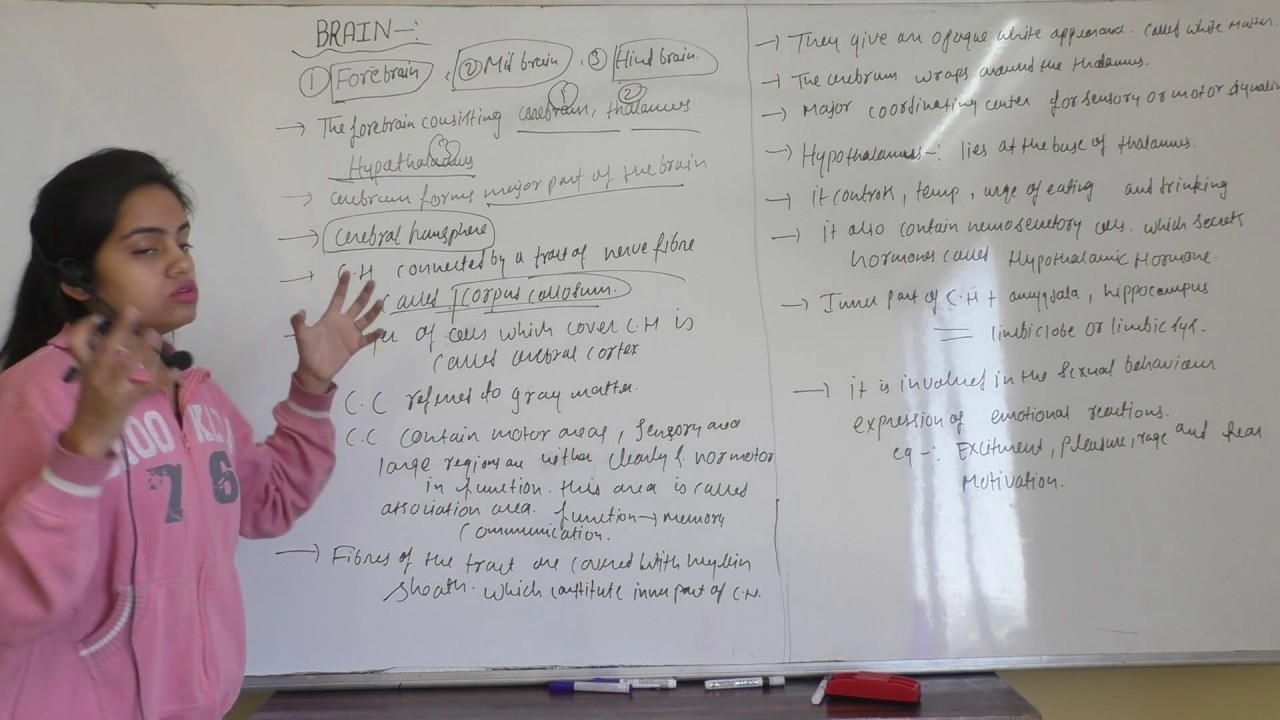 BRAIN-:
① Forebrain , ② Mid brain , ③ Hind brain.
① ②
→ The forebrain consisting cerebrum, thalamus
③
Hypathalamus
→ cerebrum forms major part of the brain
→ cerebral hemsphere
→ C.H connected by a tract of nerve fibre
called corpus callosum.
of cells which cover C.H is
called cerebral cortex
C.C refered to gray matter.
C.C contain motor areas, sensory area
large regions are neither clearly s. nor motor
in function. this area is called
association area. function → memory
communication.
→ Fibres of the tract are covered with myelin
sheath. which constitute inner part of C.H.
→ They give an opaque white apperance. called white matter.
→ The cerebrum wraps around the thalamus.
→ Major coordinating center for sensory or motor signalin
→ Hypothalamus-: lies at the base of thalamus.
→ it controls, temp, urge of eating and drinking
→ it also contain neurosecretory cells. which secrets
hormones called Hypothalamic Hormone.
→ Inner part of C.H + amygdala, hippocampus
= limbic lobe or limbic sys.
→ it is involved in the sexual behaviour
expression of emotional reactions.
eg-: Excitment, pleasure, rage and fear
Motivation.
76